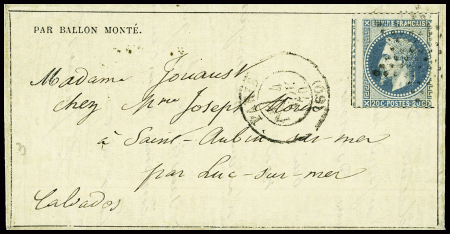 PAR BALLON MONTÉ.
EMPIRE FRANÇAIS
20C POSTES 20C
Madame Jouaust
chez Mme Joseph
à Saint-Aubin-sur-mer
par Luc-sur-mer
Calvados
PARIS
(60)